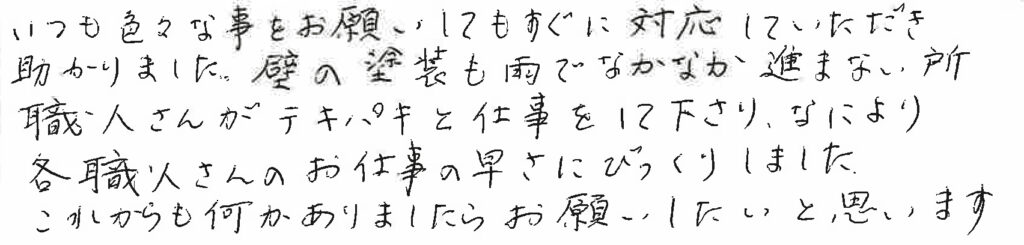 いつも色々な事をお願いしてもすぐに対応していただき
助かりました。壁の塗装も雨でなかなか進まない所
職人さんがテキパキと仕事をして下さり、なにより
各職人さんのお仕事の早さにびっくりしました。
これからも何かありましたらお願いしたいと思います